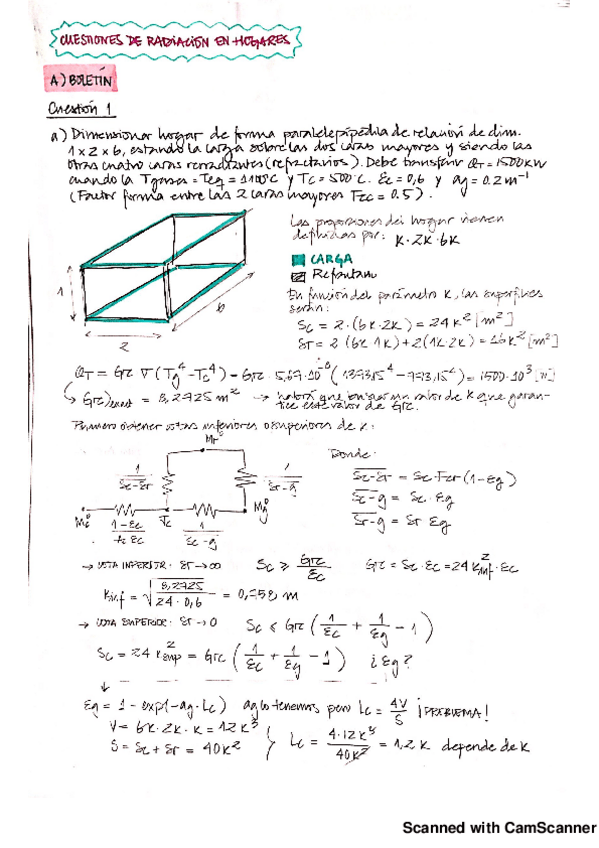 CUESTIONES DE RADIACIÓN EN HOGARES
A) BOLETÍN
Cuestión 1
a) Dimensionar hogar de forma paralelepipédica de relación de dim.
1 x 2 x 6, estando la carga sobre las dos caras mayores y siendo las
otras cuatro caras rerradiantes (refractarios). Debe transferir QT = 1500 KW
cuando la Tgases = Teq = 1100°C y Tc = 500°C. Ec = 0,6 y ag = 0.2 m⁻¹
(Factor forma entre las 2 caras mayores Fcc = 0.5).
Las proporciones del hogar vienen
definidas por: K · 2K · 6K
CARGA
1
2
6
En función del parámetro K, las superficies
serán:
Sc = 2 · (6K · 2K) = 24K² [m²]
Sr = 2 (6K · 1K) + 2(1K · 2K) = 16K² [m²]
QT = Grc ∇ (Tg⁴ - Tc⁴) - Grc · 5,67 · 10⁻⁸ (1373,15⁴ - 773,15⁴) = 1500 · 10³ [W]
= 8,2725 m² → habrá que buscar un valor de K que garan-
tice este valor de Grc.
Primero obtener cotas inferiores o superiores de K:
Donde:
1 / Sc-Sr
1 / Sr-g
Sc-Sr = Sc Fcr (1 - Eg)
Sc-g = Sc · Eg
Sr-g = Sr Eg
1 - Ec / Ac Ec
Tc
1 / Sc-g
→ COTA INFERIOR: Er → ∞ Sc ≥ Grc / Ec Grc = Sc · Ec = 24 K²inf · Ec
Kinf = √(8,2725 / 24 · 0,6) = 0,758 m
→ COTA SUPERIOR: Er → 0 Sc ≤ Grc (1/Ec + 1/Eg - 1)
Sc = 24 K²sup = Grc (1/Ec + 1/Eg - 1) ¿Eg?
Eg = 1 - exp(-ag · Lc) ag lo tenemos pero Lc = 4V/S ¡PROBLEMA!
V = 6K · 2K · K = 12K³
S = Sc + Sr = 40K² } Lc = 4 · 12K³ / 40K² = 1,2 K depende de K
Scanned with CamScanner